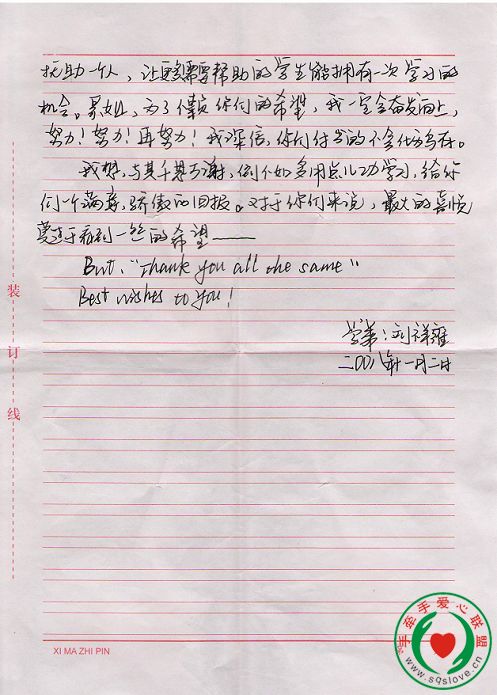 扶助一个人，让更多需要帮助的学生能拥有一次学习的
机会。，为了你们的希望，我一定会奋发向上，
努力！努力！再努力！我深信，你们付出的不会化为乌有。
我想，与其千恩万谢，倒不如多用点儿功学习，给你
们一个满意，骄傲的回报。对于你们来说，最大的喜悦
莫过于看到一丝的希望——
But, "Thank you all the same"
Best wishes to you!
学弟：刘祥雍
二〇〇八年一月二日
装
订
线
XI MA ZHI PIN
手牵手爱心联盟
www.sqslove.cn